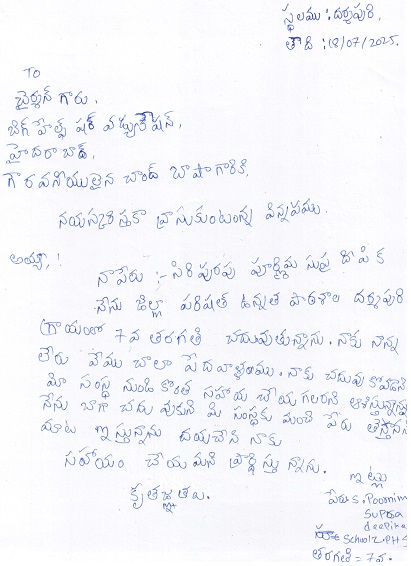 స్థలము : దర్మపురి,
తాది : 18/07/2025.
TO
ఛైర్మన్ గారు,
బిగ్ హెల్ప్ ఫర్ ఎడ్యుకేషన్,
హైదరాబాద్,
గౌరవనీయులైన చాంద్ బాషా గారికి,
నమస్కరిత్తకా వ్రాసుకుంటున్న విన్నపము.
అయ్యా,!
నా పేరు :- సిరిపురపు పూర్ణిమ సుప్ర దీపిక
నేను జిల్లా పరిషత ఉన్నత పాఠశాల దర్మపురి
గ్రామంలో 7వ తరగతి చదువుతున్నాను. నాకు నాన్న
లేరు మేము చాలా పేదవాళ్లము. నాకు చదువు
మీ సంస్థ నుండి కొంత సహాయ చేయగలరని ఆశిస్తున్నాను
నేను బాగా చదువుకుని మీ సంస్థకు మంచి పేరు తెస్తానని
మాట ఇస్తున్నాను దయచేసి నాకు
సహాయం చేయమని ప్రార్థిస్తున్నాను.
కృతజ్ఞతలు.
ఇట్లు
పేరు S. Poornima
Supraa
deepika
School Z.PHS
తరగతి = 7వ.